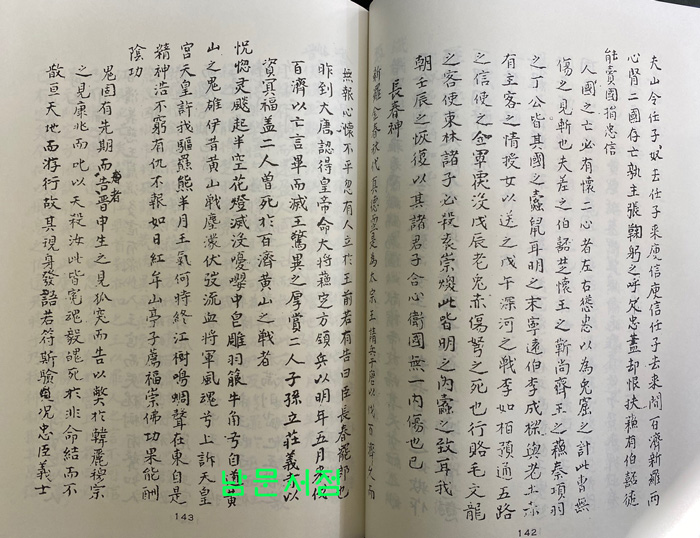 夫山令任子奴去任子來庾信庾信任子去來間百濟新羅兩
心腎二國存亡孰主張鞠躬之呼欠忠蓋却恨扶蘇有伯嚭徒
能賣國指忠信
人國之亡必有懷二心者左右慫恿以爲兔窟之計此曹無
傷之見斬也夫差之伯嚭楚懷王之靳尚齊王之蘇秦項羽
之丁公皆其國之蠹鼠耳明之末寧遠伯李成樑與老土亦
有主客之情授女以送之戊午深河之戰李如栢預通五路
之信使之全軍覆沒戊辰老兎亦傷弩之死也行賂毛文龍
之客使東林諸子必殺袁崇煥此皆明之內蠹之致耳我
朝壬辰之恢復以其諸君子合心衛國無一內傷也已
長春神
新羅金春秋代眞德而立是爲太宗王請兵于唐以伐百濟久而
無報心懷不平忽有人立於王前若有告曰臣長春罷郞也
昨到大唐認得皇帝命大將蘇定方領兵以明年五月來伐
百濟以亡言畢而滅王驚異之厚賞二人子孫立莊義寺以
資冥福盖二人曾死於百濟黃山之戰者
怳惚灵颷起半空花燈滅沒嚶嚶中皀雕羽箙牛角弓自道黃
山之鬼雄伊昔黃山戰塵濛伏弢流血將軍風魂兮上訴天皇
宮天皇許我驅羆熊半月王氣何時終江樹鳴蜩聲在東自是
精神浩不窮有仇不報如日紅年山亭子薦福崇佛功果能酬
陰功
鬼固有先期而告者晋申生之見狐突而告以獘於韓麗穆宗
之見康兆而叱以天殺汝此皆冤魂毅魄死於非命結而不
散亘天地而游行故其現身發語若符斯驗與况忠臣義士
143
142
남문서점